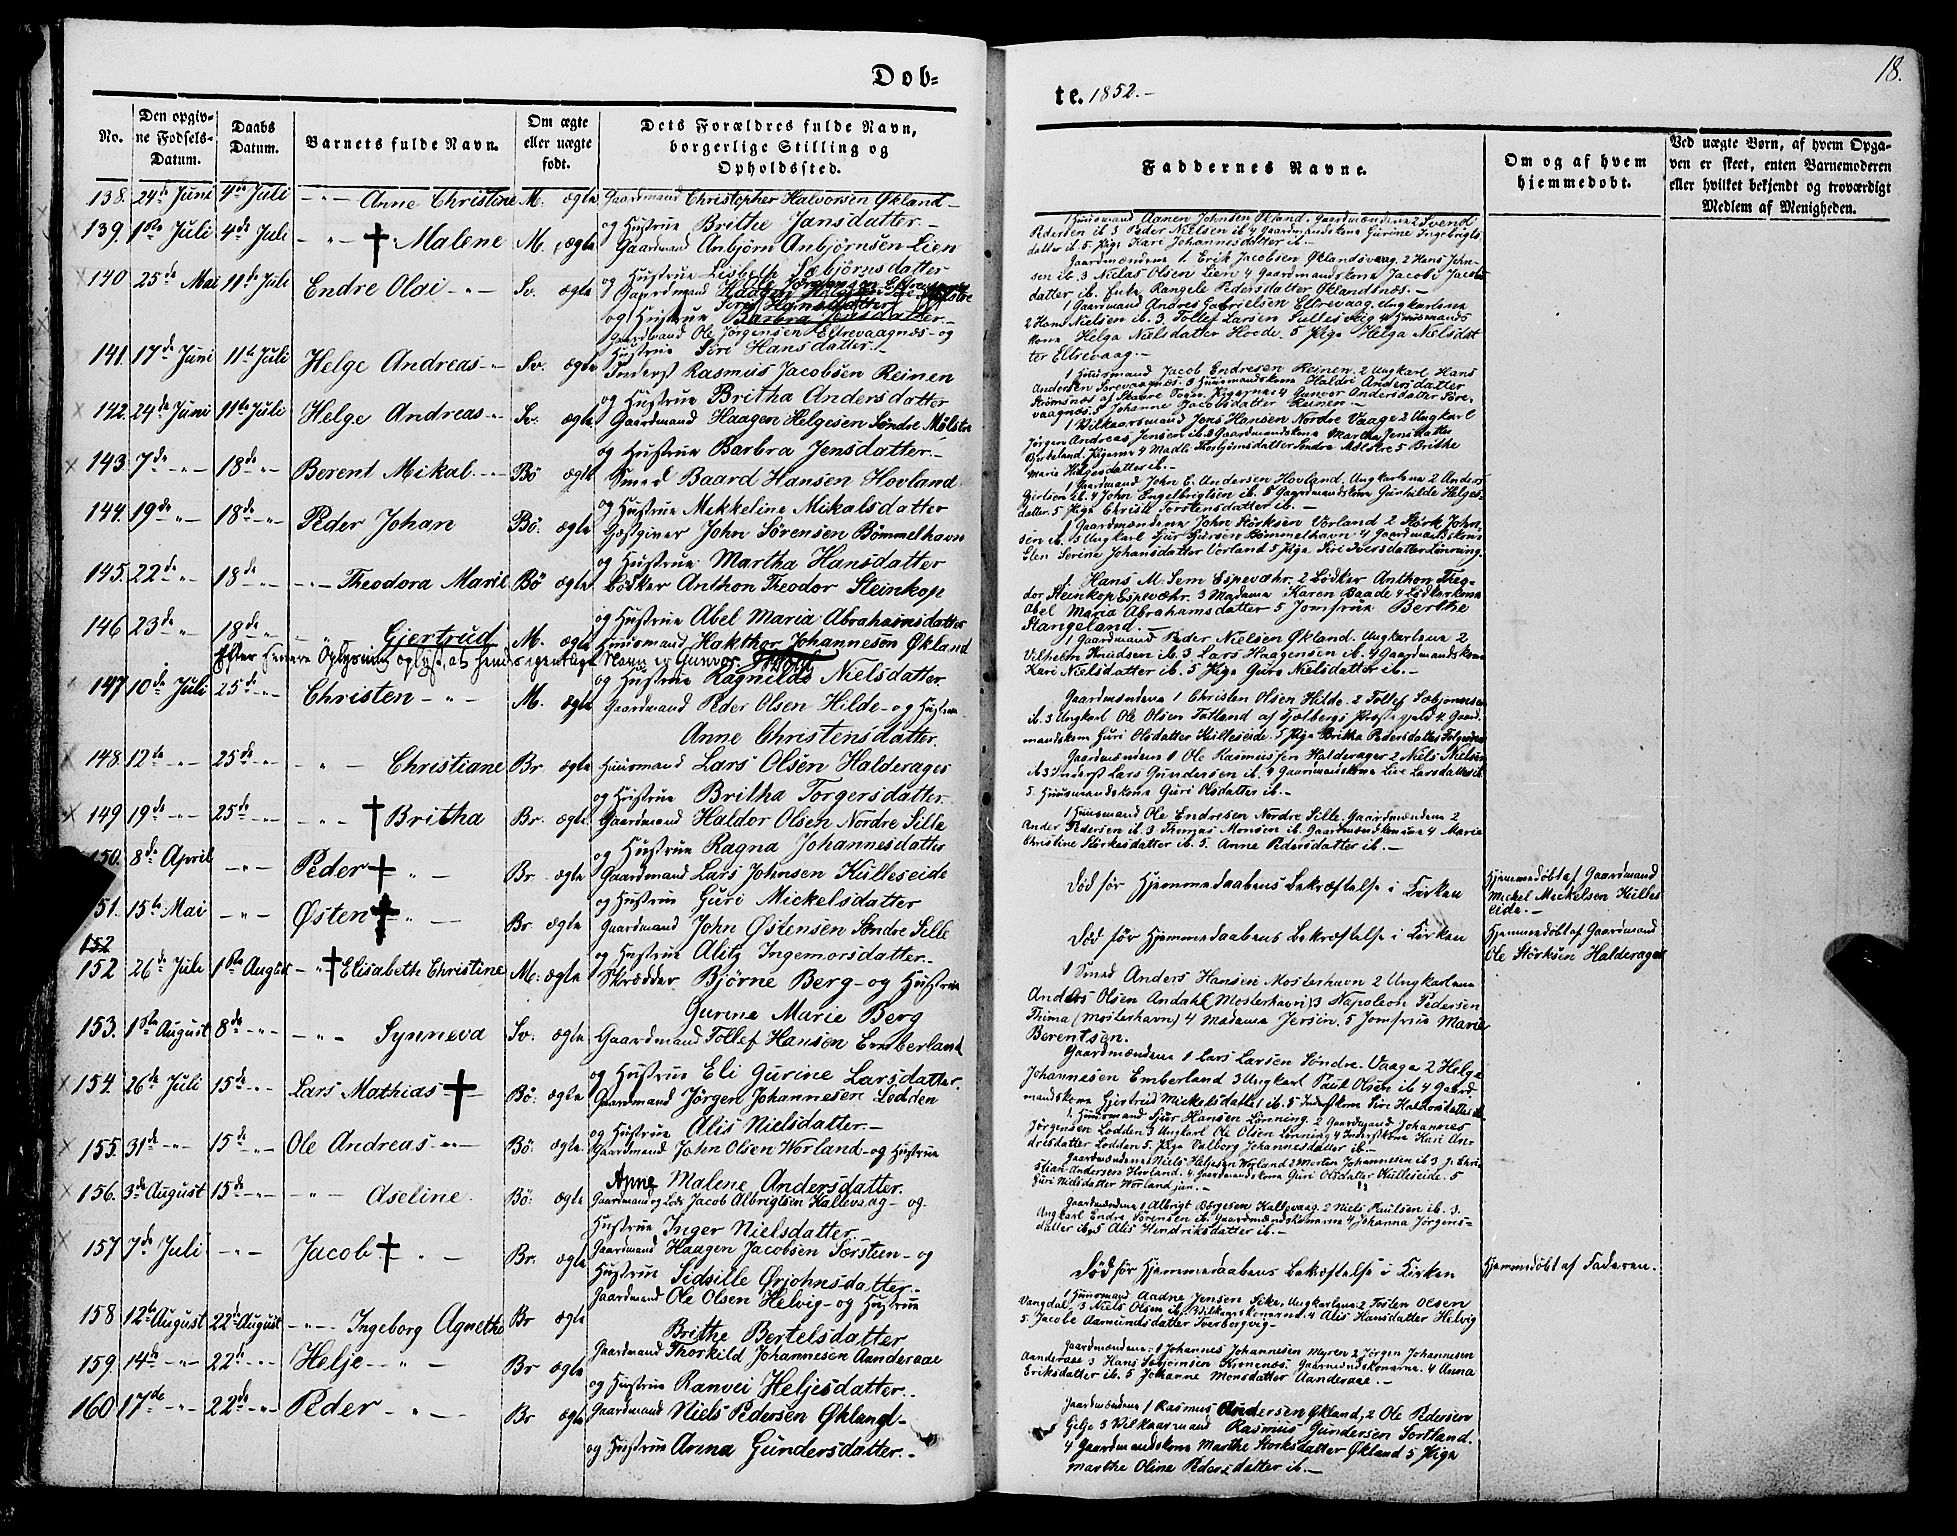 Dob=
No.
Den opgiv=
ne Fodsels=
Datum.
Daabs
Datum.
Barnets fulde Navn.
Om ægte
eller uægte
fodt.
Dets Forældres fulde Navn,
borgerlige Stilling og
Opholdssted.
138. 24de Juni 4de Juli -"- Anne Christine M. ægte Gaardmand Christopher Halvorsen Økland-
og Hustrue Brithe Jansdatter.-
139. 1ste Juli 4de Juli -"- Malene M. ægte Gaardmand Anbjørn Anbjørnsen Lien
og Hustrue Lisbeth Sæbjørnsdatter
140 25de Mai 11te Juli Endre Olai -"- Sv. ægte Gaardmand
og Hustrue Barbra Jensdatter.-
Gaardmand Ole Jørgensen Eltrevaagnæs- og
Hustrue Siri Hansdatter.-
141. 17de Juni 11te Juli Helge Andreas -"- Sv. ægte Inderst Rasmus Jacobsen Reinen
og Hustrue Britha Andersdatter
142. 24de Juni 11te Juli Helge Andreas -"- Sv. ægte Gaardmand Haagen Helgesen Søndre Mølster
og Hustrue Barbra Jensdatter.-
143. 7de -"- 18de -"- Berent Mikal -"- Bö ægte Smed Baard Hansen Hovland
og Hustrue Mekkeline Mikalsdatter
144. 19de -"- 18de -"- Peder Johan Bö. ægte Gjæstgiver John Sørensen Bömmelhavn
og Hustrue Martha Hansdatter
145. 22de -"- 18de -"- -"- Theodora Marie Bö ægte Bödker Anthon Theodor Steinkop
og Hustrue Abel Maria Abrahamsdatter
146 23de -"- 18de -"- -"- Gjertrud M. ægte Huusmand Hakthor Johannesen Økland
Efter senere Oplysning oplyst, at hendes egentlige Navn er Gunvor
og Hustrue Ragnilde Nielsdatter
147 10de Juli 25de -"- Christen -"- M. ægte Gaardmand Peder Olsen Hilde- og Hustrue
Anne Christensdatter.
148 12te -"- 25de -"- -"- Christiane Br. ægte Huusmand Lars Olsen Halderager
og Hustrue Britha Torgersdatter
149 19de -"- 25de -"- -"- Britha Br. ægte Gaardmand Haldor Olsen Nordre Sille
og Hustrue Ragna Johannesdatter
150. 8de April -"- Peder -"- Br. ægte Gaardmand Lars Johnsen Külleseide
og Hustrue Guri Mickelsdatter
151. 15te Mai -"- Østen -"- Br. ægte Gaardmand John Østensen Søndre Sille
og Hustrue Alitz Ingemorsdatter.-
152
152 26de Juli 1ste August -"- Elisabeth Christine M. ægte Skrædder Bjørne Berg- og Hustrue
Gurine Marie Berg
153. 1ste August 8de -"- -"- Synneva Sv. ægte Gaardmand Tollef Hansen Emberland
og Hustrue Eli Gurine Larsdatter.
154 26de Juli 15de -"- Lars Mathias Bö. ægte Gaardmand Jørgen Johannesen Lodden
og Hustrue Alis Nielsdatter.-
155. 31de -"- 15de -"- Ole Andreas -"- Bö. ægte Gaardmand John Olsen Worland- og Hustrue
Anne Malene Andersdatter.
156. 3de August 15de -"- -"- Aseline Bö. ægte Gaardmand og Lods Jacob Albrigtsen Hallevaag- og
Hustrue Inger Nielsdatter
157 7de Juli -"- Jacob -"- Br. ægte Gaardmand Haagen Jacobsen Særsten- og
Hustrue Sidsille Ørjohnsdatter.-
158 12te August 22de August -"- Ingeborg Agnethe Br ægte Gaardmand Ole Olsen Helvig- og Hustrue
Brithe Bertelsdatter
159. 14te -"- 22de -"- Helje -"- Br ægte Gaardmand Thorkild Johannesen Aanderaae
og Hustrue Ranvei Heljesdatter.-
160 17de -"- 22de -"- Peder -"- Br ægte Gaardmand Niels Pedersen Økland-
og Hustrue Anna Gundersdatter.-
18.
te. 1852.-
Faddernes Navne.
Om og af hvem
hjemmedobt.
Ved uægte Born, af hvem Opga=
ven er skeet, enten Barnemoderen
eller hvilket bekjendt og troværdigt
Medlem af Menigheden.
1 Huusmand Aanen Johnsen Økland. Gaardmændene 2 Svend
Pedersen ib 3 Peder Nielsen ib 4 Gaardmandskone Gurine Ingebrigts
datter ib. 5 Pige Kari Johannesdatter ib.-
Gaardmændene 1 Erik Jacobsen Øklandsvaag. 2 Hans John-
sen ib. 3 Niclas Olsen Lien 4 Gaardmandskone Jacobi Jacobs
datter ib. Enke Rangele Pedersdatter Øklandsnæs.-
1 Gaardmand Andres Gabrielsen Eltrevaag. Ungkarlene
2 Hans Nielsen ib. 3 Tollef Larsen Sullesvig 4 Huusmands
kone Helga Nielsdatter Hovde. 5 Pige Helga Nielsdat
ter Eltrevaag.-
1 Huusmand Jacob Endresen Reinen. 2 Ungkarl Hans
Andersen Sørevaagnæs. 3 Huusmandskone Haldri Andersdatter
Strömsnæs af Skaare Sogn. Pigerne 4 Gunvor Andersdatter Søre-
vaagnæs. 5 Johanne Jacobsdatter Reinen.-
1 Vilkaarsmand Jens Hansen Nordre Vaage 2 Ungkarl
Jørgen Andreas Jensen ib. 3 Gaardmandskone Martha Jensdatter
Pigerne 4 Madli Thorbjørnsdatter Søndre Mølster 5 Brithe
Marie Helgesdatter ib.-
1 Gaardmand John E. Andersen Hovland. Ungkarlene 2 Anders
ib. 4 John Engelbrigtsen ib. 5 Gaardmandskone Gunhilde Helges-
datter. 5 Pige Christi Torstensdatter ib.-
1 Gaardmændene John Størksen Vorland 2 Størk John-
sen ib. 3 Ungkarl Sjur Sjursen Bömmelhavn 4 Gaardmandskone
Elen Serine Johansdatter Vorland 5 Pige Siri Iversdatter Lönning.
1. Hans M. Sem Espevæhr. 2 Bödker Anthon Theo-
dor Steinkop Espevæhr. 3 Madame Karen Baade 4 Bödkerkone
Abel Maria Abrahamsdatter 5 Jomfrue Berthe
Stangeland.-
1 Gaardmand Peder Nielsen Økland. Ungkarlene 2
Vilhelm Knudsen ib. 3 Lars Haagensen ib. 4 Gaardmandskone
Kari Nielsdatter ib. 5 Pige Guro Nielsdatter ib.-
Gaardmændene 1 Christen Olsen Hilde. 2 Tollef Sæbjørnsen
ib. 3 Ungkarl Ole Olsen Tatland af Fjælbergs Præstegjeld 4 Gaard-
mandskone Guri Olsdatter Külleseide. 5 Pige Britha Pedersdatter
Gaardmændene 1 Ole Rasmussen Halderager 2 Niels Nielsen
ib. 3 Inderst Lars Gundersen ib. 4 Gaardmandskone Live Larsdatter ib
5. Huusmandskone Guri Olsdatter ib.-
1 Huusmand Ole Endresen Nordre Sille. Gaardmændene 2
Ander Pedersen ib. 3 Thomas Monsen ib. Gaardmandskonerne 4 Maria
Christine Størkesdatter ib. 5. Anne Pedersdatter ib.-
Död för Hjemmedaabens Bekræftelse i Kirken
Hjemmedøbt af Gaardmand
Mickel Mickelsen Külles
eide.-
Död för Hjemmedaabens Bekræftelse i Kirken
Hjemmedøbt af Gaardmand
Ole Størksen Halderager
1 Smed Anders Hansen Mosterhavn 2 Ungkarlene
Anders Olsen Andahl (Mosterhavn) 3 Napoleon Pedersen
Thima (Mosterhavn) 4 Madame Jersin. 5 Jomfrue Marie
Berentsen.
Gaardmændene 1 Lars Larsen Søndre Vaage 2 Helge
Johannesen Emberland 3 Ungkarl Paul Olsen ib 4 Gaard-
mandskone Gjertrud Mickelsdatter ib. 5 Inderstkone Siri Haldorsdatter ib
1. Huusmand Sjur Hansen Lönning. 2 Gaardmand Johannes
Jørgensen Lodden 3 Ungkarl Ole Olsen Lönning 4 Inderstkone Kari An-
dresdatter Lodden 5. Pige Valborg Johannesdatter ib.-
Gaardmændene 1 Niels Heljesen Worland 2 Morten Johannesen ib 3. J. Chri-
stian Andersen Hovland. 4 Gaardmandskone Guri Olsdatter Külleseide. 5
Guri Nielsdatter Worland jun.-
Gaardmændene 1 Albrigt Börgesen Hallevaag. 2 Niels Paulsen ib. 3.
Ungkarl Endre Sörensen ib. Gaardmandskonerne 4 Johanna Jörgens-
datter ib. 5 Alis Hendriksdatter ib.-
Död för Hjemmedaabens Bekræftelse i Kirken
Hjemmedøbt af Faderen.
1 Huusmand Aadne Jensen Eike. Ungkarlene 2 Tosten Olsen
Vangdal 3 Niels Olsen ib. Vilkaarskonerne 4 Alis Hansdatter Helvig
5. Jacobe Aamundsdatter Tverborgvig-
Gaardmændene 1 Johannes Johannesen Myren 2 Jørgen Johannesen
Aanderaae 3 Hans Sæbjørnsen Kinnenæs. Gaardmandskonerne. 4 Anna
Eriksdatter ib. 5 Johanne Monsdatter Aanderaae.-
Gaardmændene 1 Rasmus Andersen Økland, 2 Ole Pedersen
Gilje 3 Vilkaarmand Rasmus Gundersen Sortland.
4 Gaardmandskone Marthe Storksdatter Økland 5 Pige
Marthe Oline Pedersdatter ib.-